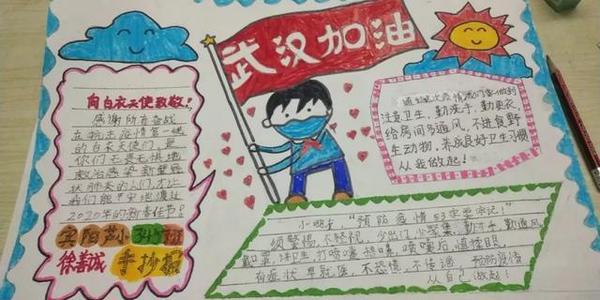 武汉加油
向白衣天使致敬!
感谢所有奋战
在抗击疫情第一线
的白衣天使们,是
你们无畏无惧地
救治感染新冠
状肺炎的人们,才让
我们能
2020年的新春佳节!
宾阳芦小
班
徐善诚
手抄报
注意卫生,勤洗手,勤更衣,
给房间多通风,不进食野
生动物,养成良好卫生习惯
从我做起!
小明子"预防疫情
要牢记!"
须警惕,不轻视,少出门,少聚集,勤洗手,勤通风
戴口罩,讲卫生,打喷嚏,捂口鼻,喷嚏后,慎揉眼
有症状,早就医,不恐慌,不传谣,预防疫情
从自己做起!